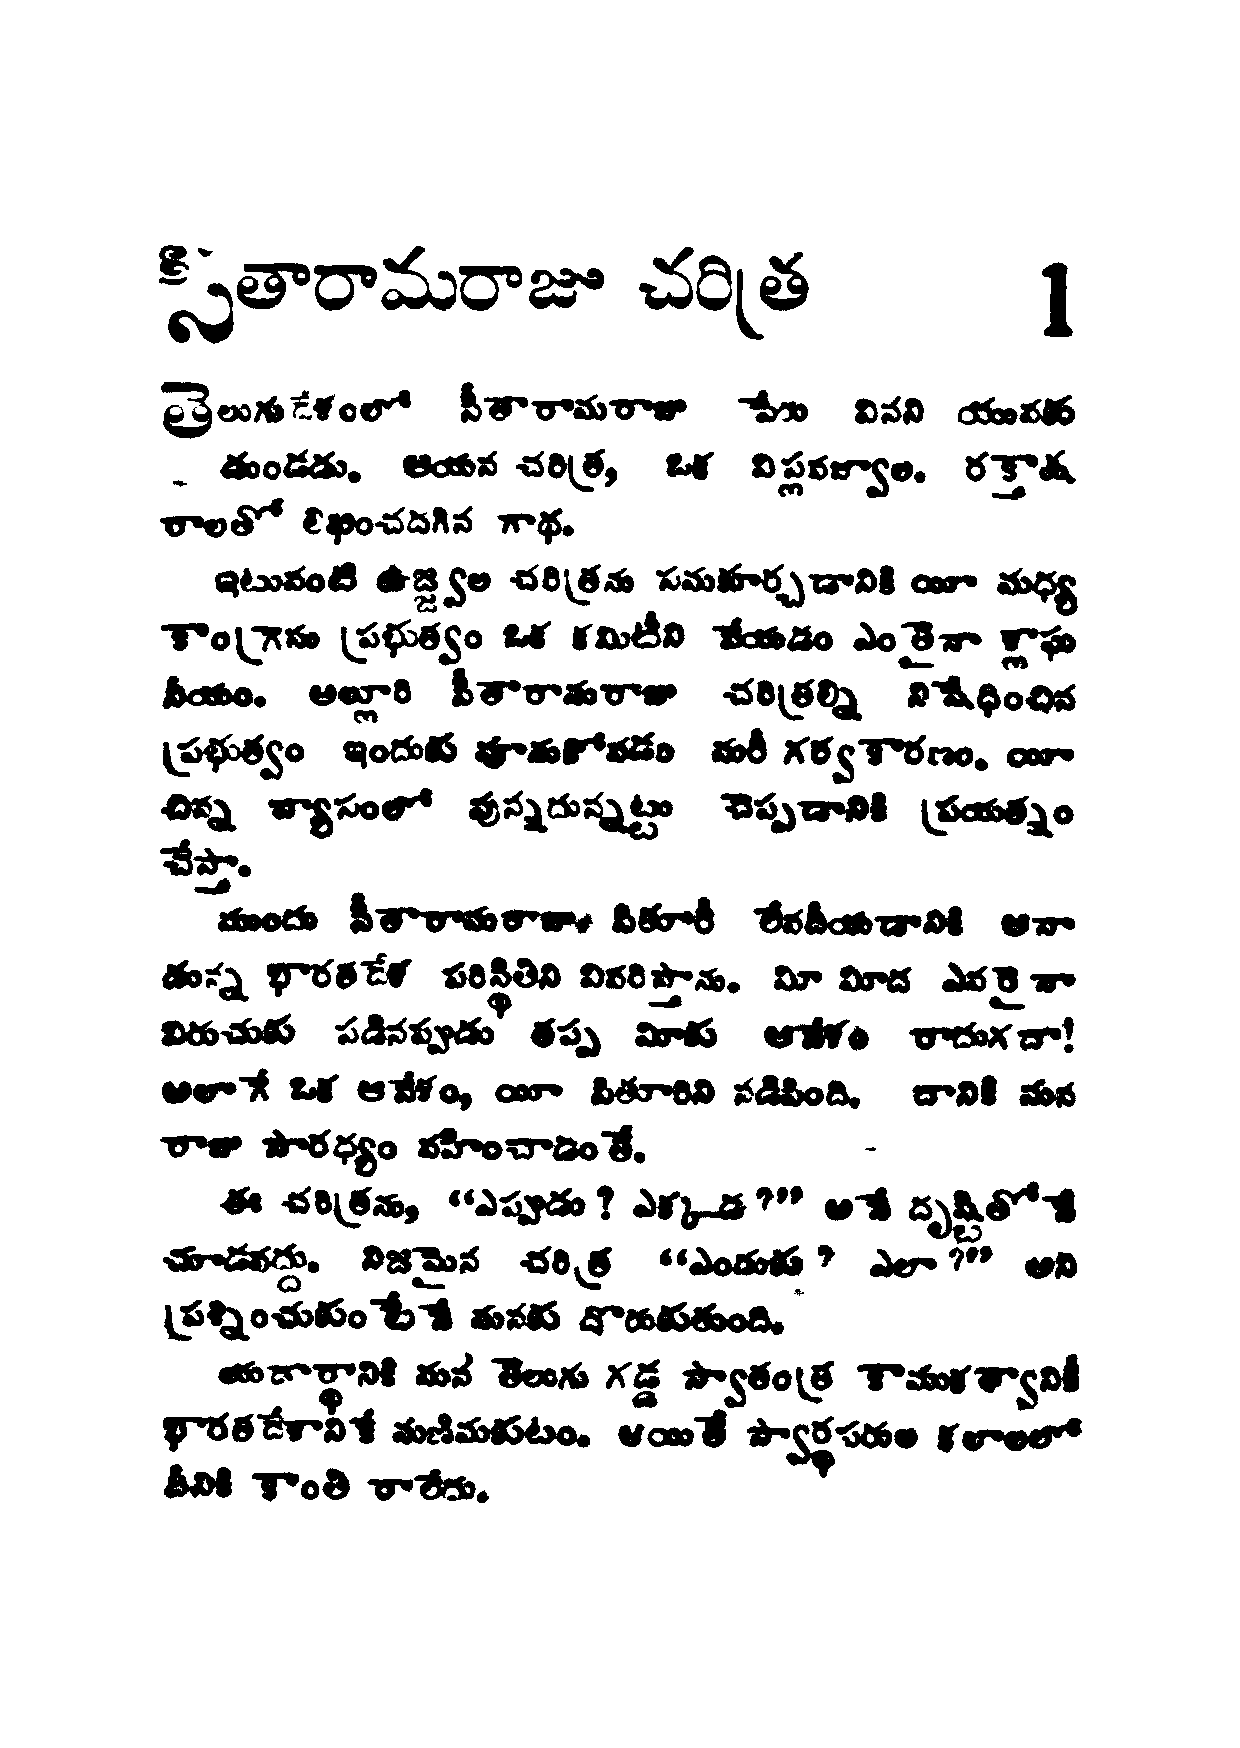 సీతారామరాజు చరిత్ర 1
తెలుగుదేశంలో సీతారామరాజు పేరు వినని యువకు
డుండడు. ఆయన చరిత్ర, ఒక విప్లవజ్వాల. రక్తాక్ష
రాలతో లిఖించదగిన గాథ.
ఇటువంటి ఉజ్జ్వల చరిత్రను సమకూర్చడానికి యీ మధ్య
కాంగ్రెసు ప్రభుత్వం ఒక కమిటీని వేయడం ఎంతైనా శ్లాఘ
నీయం. అల్లూరి సీతారామరాజు చరిత్రల్ని నిషేధించిన
ప్రభుత్వం ఇందుకు పూనుకోవడం మరీ గర్వకారణం. యీ
చిన్న వ్యాసంలో వున్నదున్నట్టు చెప్పడానికి ప్రయత్నం
చేస్తా.
ముందు సీతారామరాజు పితూరీ లేవదీయడానికి ఆనా
డున్న భారతదేశ పరిస్థితిని వివరిస్తాను. మీ మీద ఎవరైనా
విరుచుకు పడినప్పుడు తప్ప మీకు ఆవేశం రాదుగదా!
అలాగే ఒక ఆవేశం, యీ పితూరిని నడిపింది. దానికి మన
రాజు సారధ్యం వహించాడంతే.
ఈ చరిత్రను, “ఎప్పుడు ? ఎక్కడ ?” అనే దృష్టితోనే
చూడవద్దు. నిజమైన చరిత్ర “ఎందుకు ? ఎలా ?” అని
ప్రశ్నించుకుంటేనే మనకు దొరుకుతుంది.
యదార్థానికి మన తెలుగు గడ్డ స్వాతంత్ర కాముకత్వానికీ
భారతదేశానికే మణిమకుటం. అయితే స్వార్థపరుల కళాలలో
దీనికి కాంతి రాలేదు.